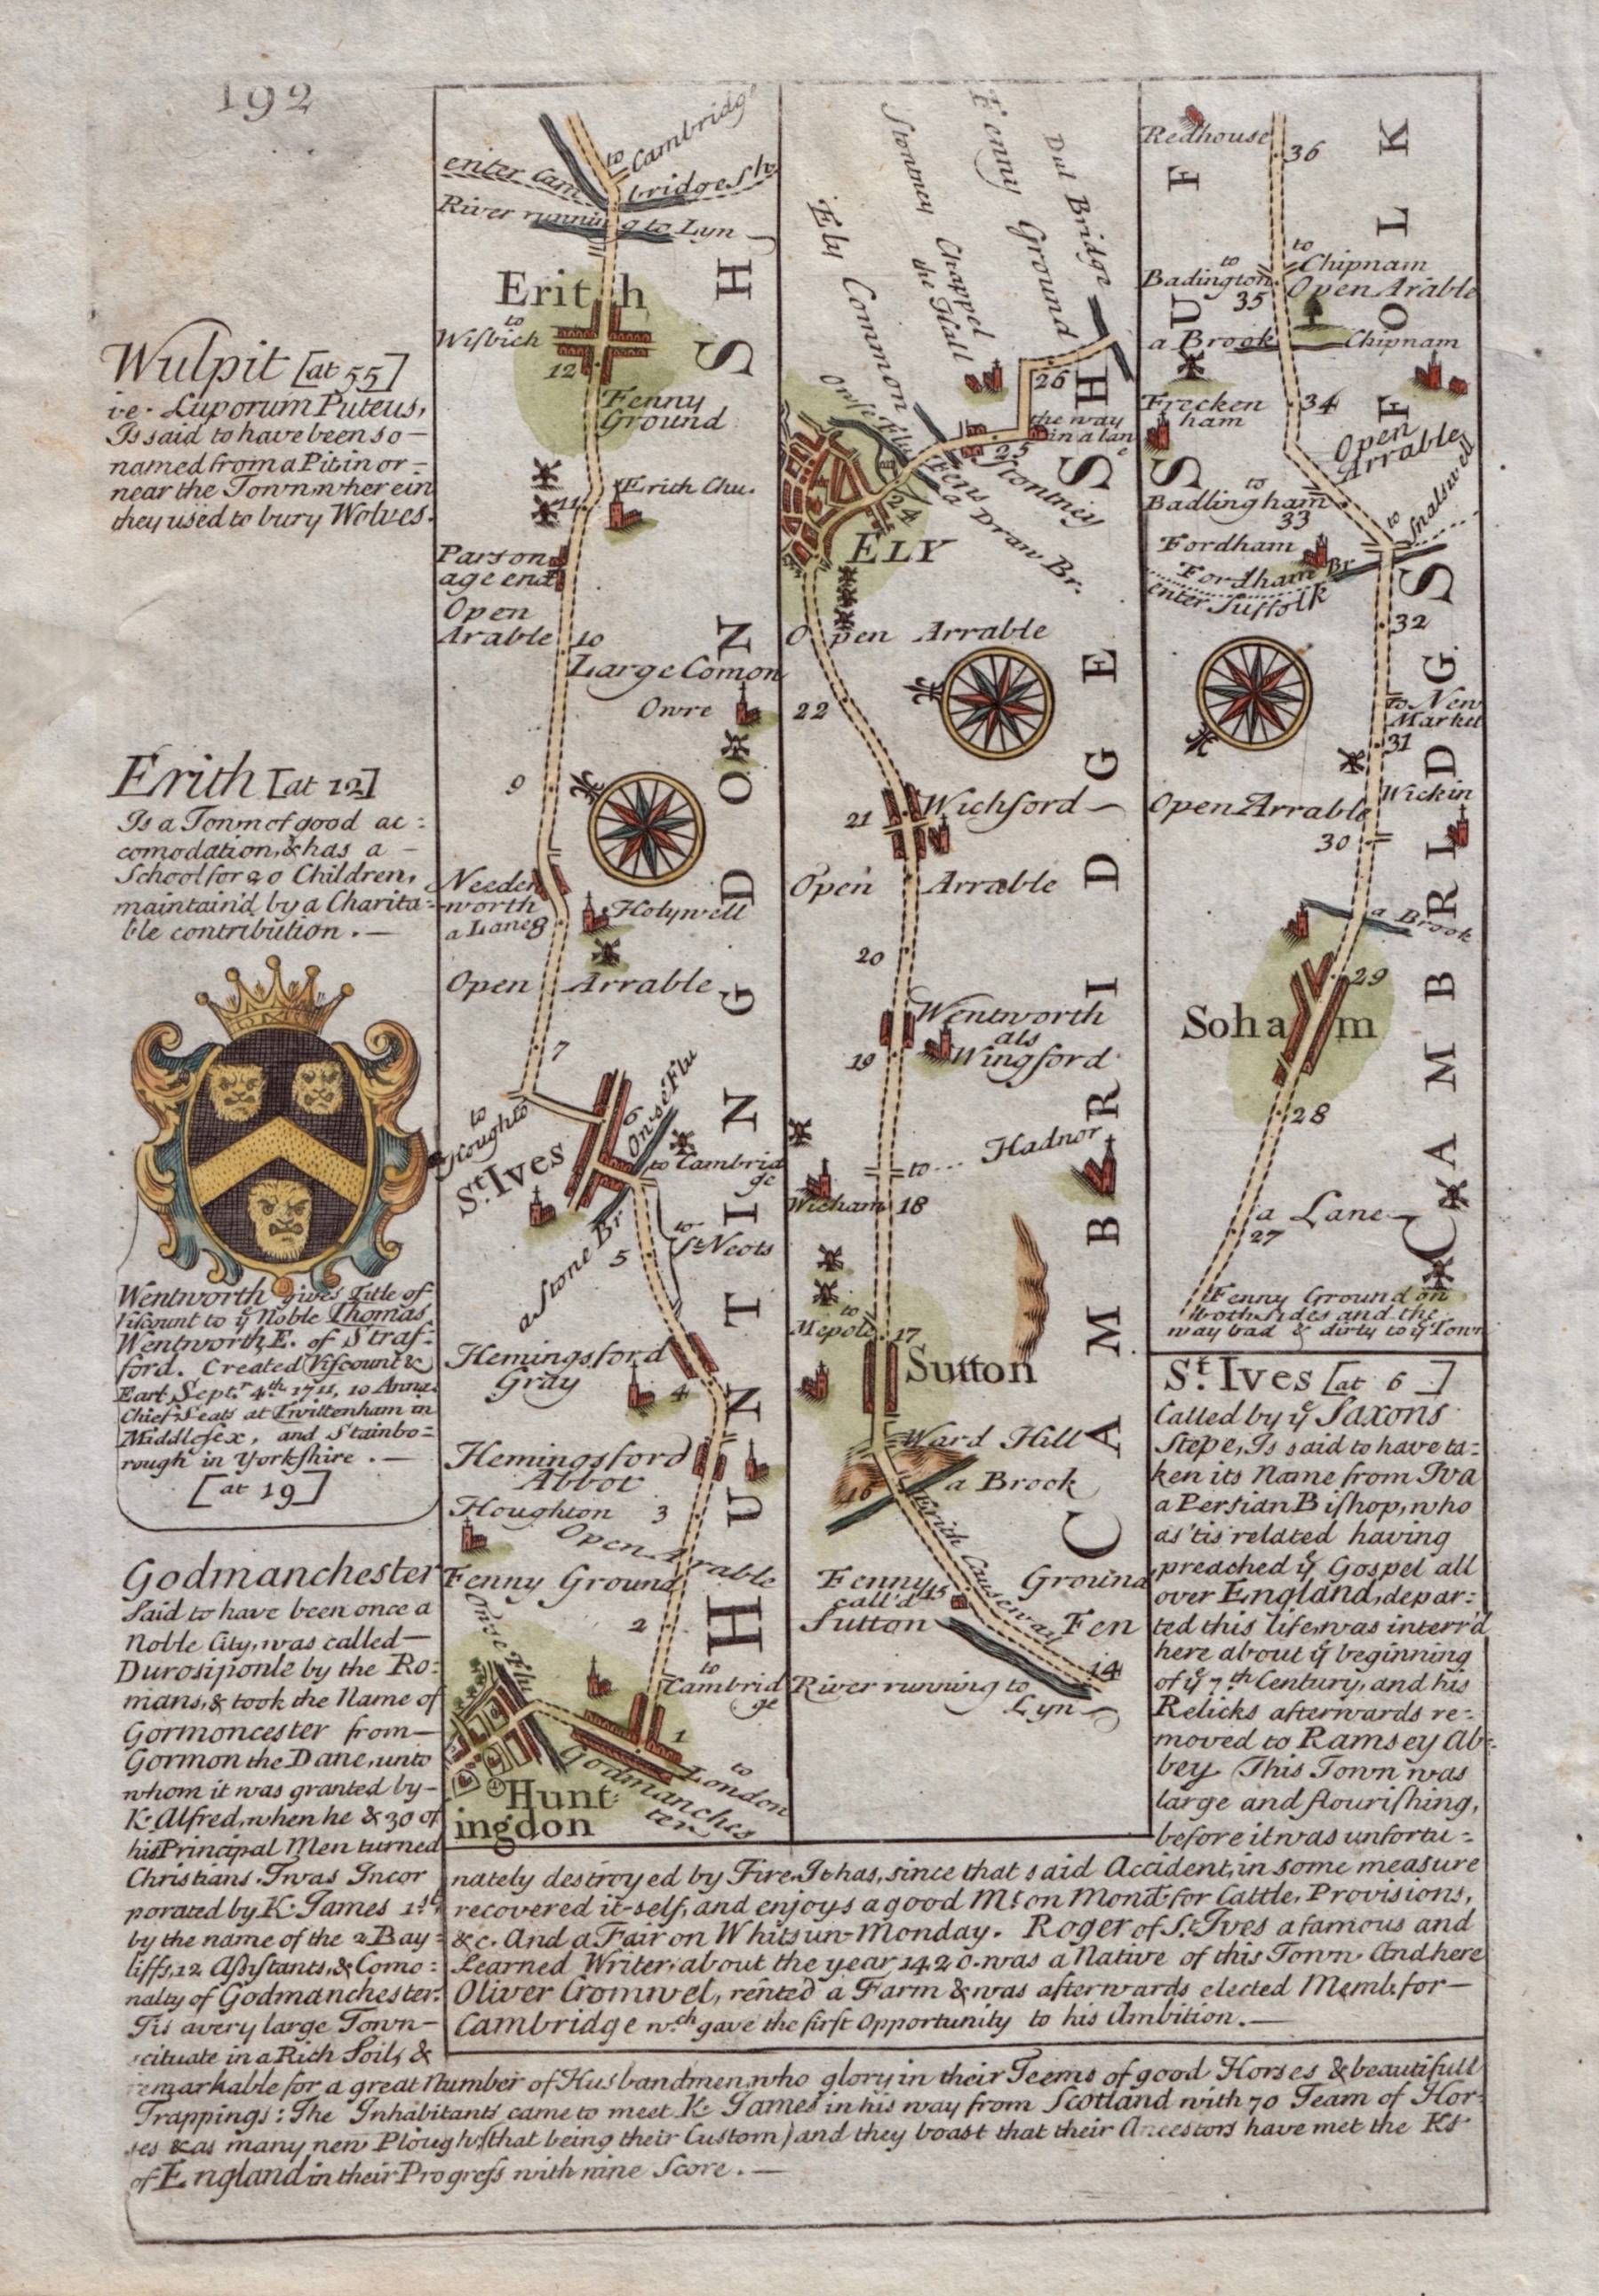 192
Wulpit [at 55]
i.e. Luporum Puteus,
Is said to have been so-
named from a Pit in or-
near the Town wherein
they used to bury Wolves.
Erith [at 12]
Is a Town of good ac:
comodation, & has a -
School for 20 Children,
maintain'd by a Charita:
ble contribution . —
Wentworth gives Title of
Viscount to ẙ Noble Thomas
Wentworth E. of Straf-
ford. Created Viscount &
Earl, Sept.r 4th. 1711, 10 Annæ
Chief Seats at Twittenham in
Middlesex, and Stainbo=
rough in Yorkshire . —
[at 19]
Godmanchester
Said to have been once a
Noble City, was called—
Durosiponte by the Ro:
mans, & took the Name of
Gormoncester from—
Gormon the Dane, unto
whom it was granted by-
K. Alfred, when he & 30 of
his Principal Men turned
Christians. Twas Incor
porated by K. James 1.st
by the name of the 2 Bay=
liffs, 12 Assistants, & Como:
nalty of Godmanchester.
Tis a very large Town—
scituate in a Rich Soil, &
remarkable for a great Number of Husbandmen, who glory in their Teems of good Horses & beautifull
Trappings: The Inhabitants came to meet K. James in his way from Scotland with 70 Team of Hor-
ses & as many new Ploughs (that being their Custom) and they boast that their Ancestors have met the Ks
of England in their Progress with nine Score . —
to
Cambridge
enter Cam
bridgesh
River running to Lyn
Erith
to
Wisbich
12
Fenny
Ground
11
Erith Chu.
Parson
age end
Open
Arable
10
Large Comon
Owre
9
Needen
worth
a Lane
8
Holywell
Open Arrable
7
to
Houghto
6
Onse Flu
St. Ives
to Cambrid
ge
a Stone Br
to
St. Neots
5
Hemingsford
Gray
4
Hemingsford
Abbot
Houghton
3
Open Arable
Fenny Ground
2
Onse Flu
to
Cambrid
ge
1
to
London
Godmanches
ter
Hunt
ingdon
HUNTINGDON SH
Stontney Chappel
the Hall
Fenny Ground
Dul Bridge
Ely Common
Owse Flu
26
the way
in a lan
e
25
Stontney
Fens
a Draw Br.
24
ELY
Open Arrable
22
Wichford
21
Open Arrable
20
Wentworth
als
Wingford
19
to... Hadnor
Wicham
18
to
Mepole
17
Sutton
Ward Hill
16
a Brook
Erith Causeway
Fenny Ground
call'd
15
Sutton Fen
14
River running to
Lyn
CAMBRIDGE SH
Redhouse
36
to
Chipnam
to
Badington
35
Open Arable
a Brook
Chipnam
34
Frecken
ham
Open
Arrable
to
Badlingham
33
to
Snalswell
Fordham
Fordham Br
enter Suffolk
32
to New
Market
31
Wickin
Open Arrable
30
a Brook
29
Soham
28
a Lane
27
Fenny Ground on
both sides and the
way bad & dirty to ẙ Town
SUFFOLK
CAMBRIDG S
St. Ives [at 6]
Called by ẙ Saxons
Slepe, Is said to have ta:
ken its Name from Iva
a Persian Bishop, who
as 'tis related having
preached ẙ Gospel all
over England, depar:
ted this life, was interr'd
here about ẙ beginning
of ẙ 7th. Century, and his
Relicks afterwards re-
moved to Ramsey Ab-
bey. This Town was
large and flourishing,
before it was unfortu-
nately destroyed by Fire. It has, since that said Accident, in some measure
recovered it-self, and enjoys a good Mt. on Mond. for Cattle, Provisions,
&c. And a Fair on Whitsun-Monday. Roger of St. Ives a famous and
Learned Writer, about the year 1420. was a Native of this Town. And here
Oliver Cromwel, rented a Farm & was afterwards elected Memb. for—
Cambridge wch. gave the first Opportunity to his Ambition . —